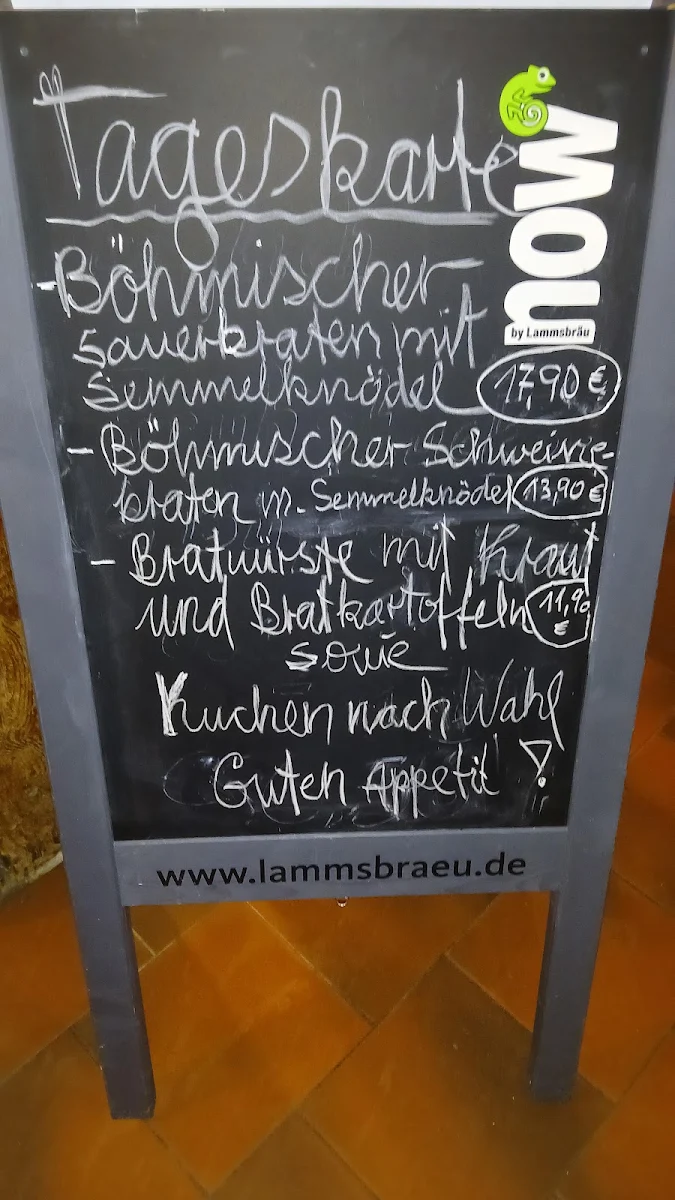 Tageskarte
now
by Lammsbräu
- Böhmischer
Sauerbraten mit
Semmelknödel 17,90 €
- Böhmischer Schweine-
braten m. Semmelknödel 13,90 €
- Bratwürste mit Kraut
und Bratkartoffeln 11,90 €
sowie
Kuchen nach Wahl
Guten Appetit !
www.lammsbraeu.de